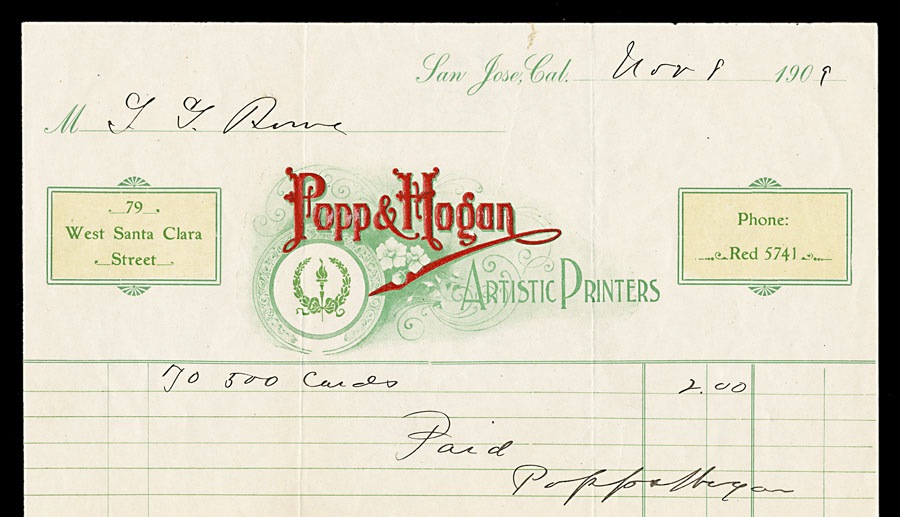 San Jose, Cal. Nov 8 1909
M T. T. Rowe
Popp & Hogan
79
West Santa Clara
Street
Artistic Printers
Phone:
Red 5741
To 500 Cards 2.00
Paid
Popp & Hogan